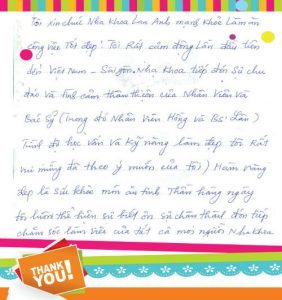 Tôi xin chúc Nha Khoa Lan Anh mạnh khỏe làm ăn
công việc Tốt đẹp! Tôi Rất cảm động Lần đầu tiên
đến Việt Nam - Sài gòn. Nha Khoa tiếp đón Sự chu
đáo và tình cảm thân thiện của Nhân Viên Và
Bác Sỹ (Trong đó Nhân Viên Hồng và Bs: Lân)
Trình độ học vấn và Kỹ năng làm đẹp tôi Rất
vui mừng đã theo ý muốn của tôi) Hàm răng
đẹp là sức khỏe món ăn tinh Thần hàng ngày
tôi luôn thể hiện sự biết ơn sự chân thành đón tiếp
chăm sóc làm việc của tất cả mọi người Nha Khoa
THANK
YOU!